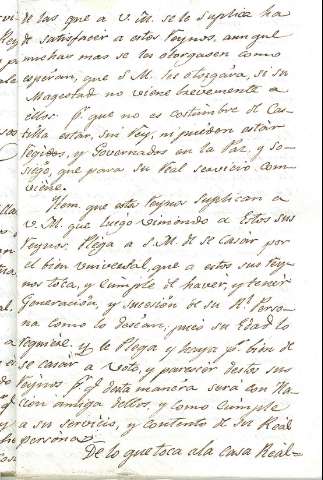 de las que a V. M. se le suplica ha
de satisfacer a estos Reynos, aunque
muchas mas se les otorgasen como
esperan, que S. M. les otorgára, si su
Magestad no viene brevemente a
ellos: pr. que no es costumbre de Cas-
tilla estar sin Rey, ni pueden estár
regidos, y Governados en la Paz y so-
siego, que para su Real servicio com-
viene.
Item que estos Reynos suplican a
V. M. que luego viniendo a Estos sus
Reynos, Plega a S. M. de se Casár por
el bien universal, que a estos sus Rey-
nos toca, y cumple de haver, y tenér
Generacion, y sucesion de su Rl. Perso-
na como lo deséan, pues su Edad lo
requiere, y le Plega y haya pr. bien de
se casár a voto, y parecér destos sus
Reynos pr. q desta manera será con Na-
cion amiga dellos, y como Cumple
a su servicio, y contento de su Reál
persona.
De lo que toca a la Casa Reál=